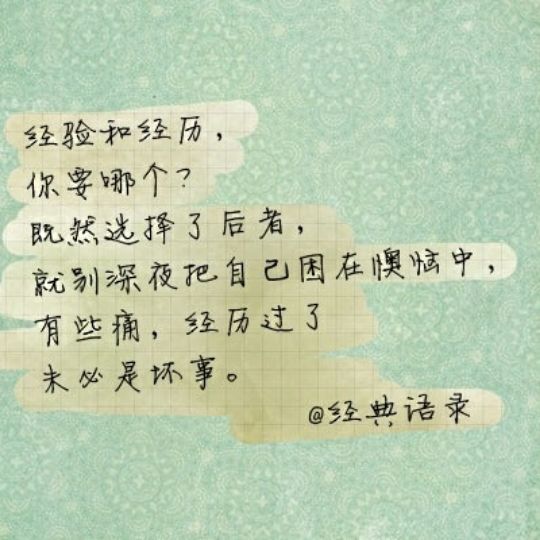 经验和经历，
你要哪个？
既然选择了后者，
就别深夜把自己困在懊恼中，
有些痛，经历过了
未必是坏事。
@经典语录